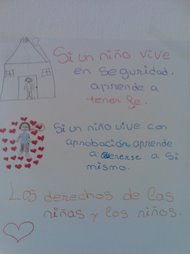 Si un niño vive
en seguridad,
aprende a
tener fe.
Si un niño vive con
aprobación aprende
a quererse a si
mismo.
Los derechos de las
niñas y los niños.